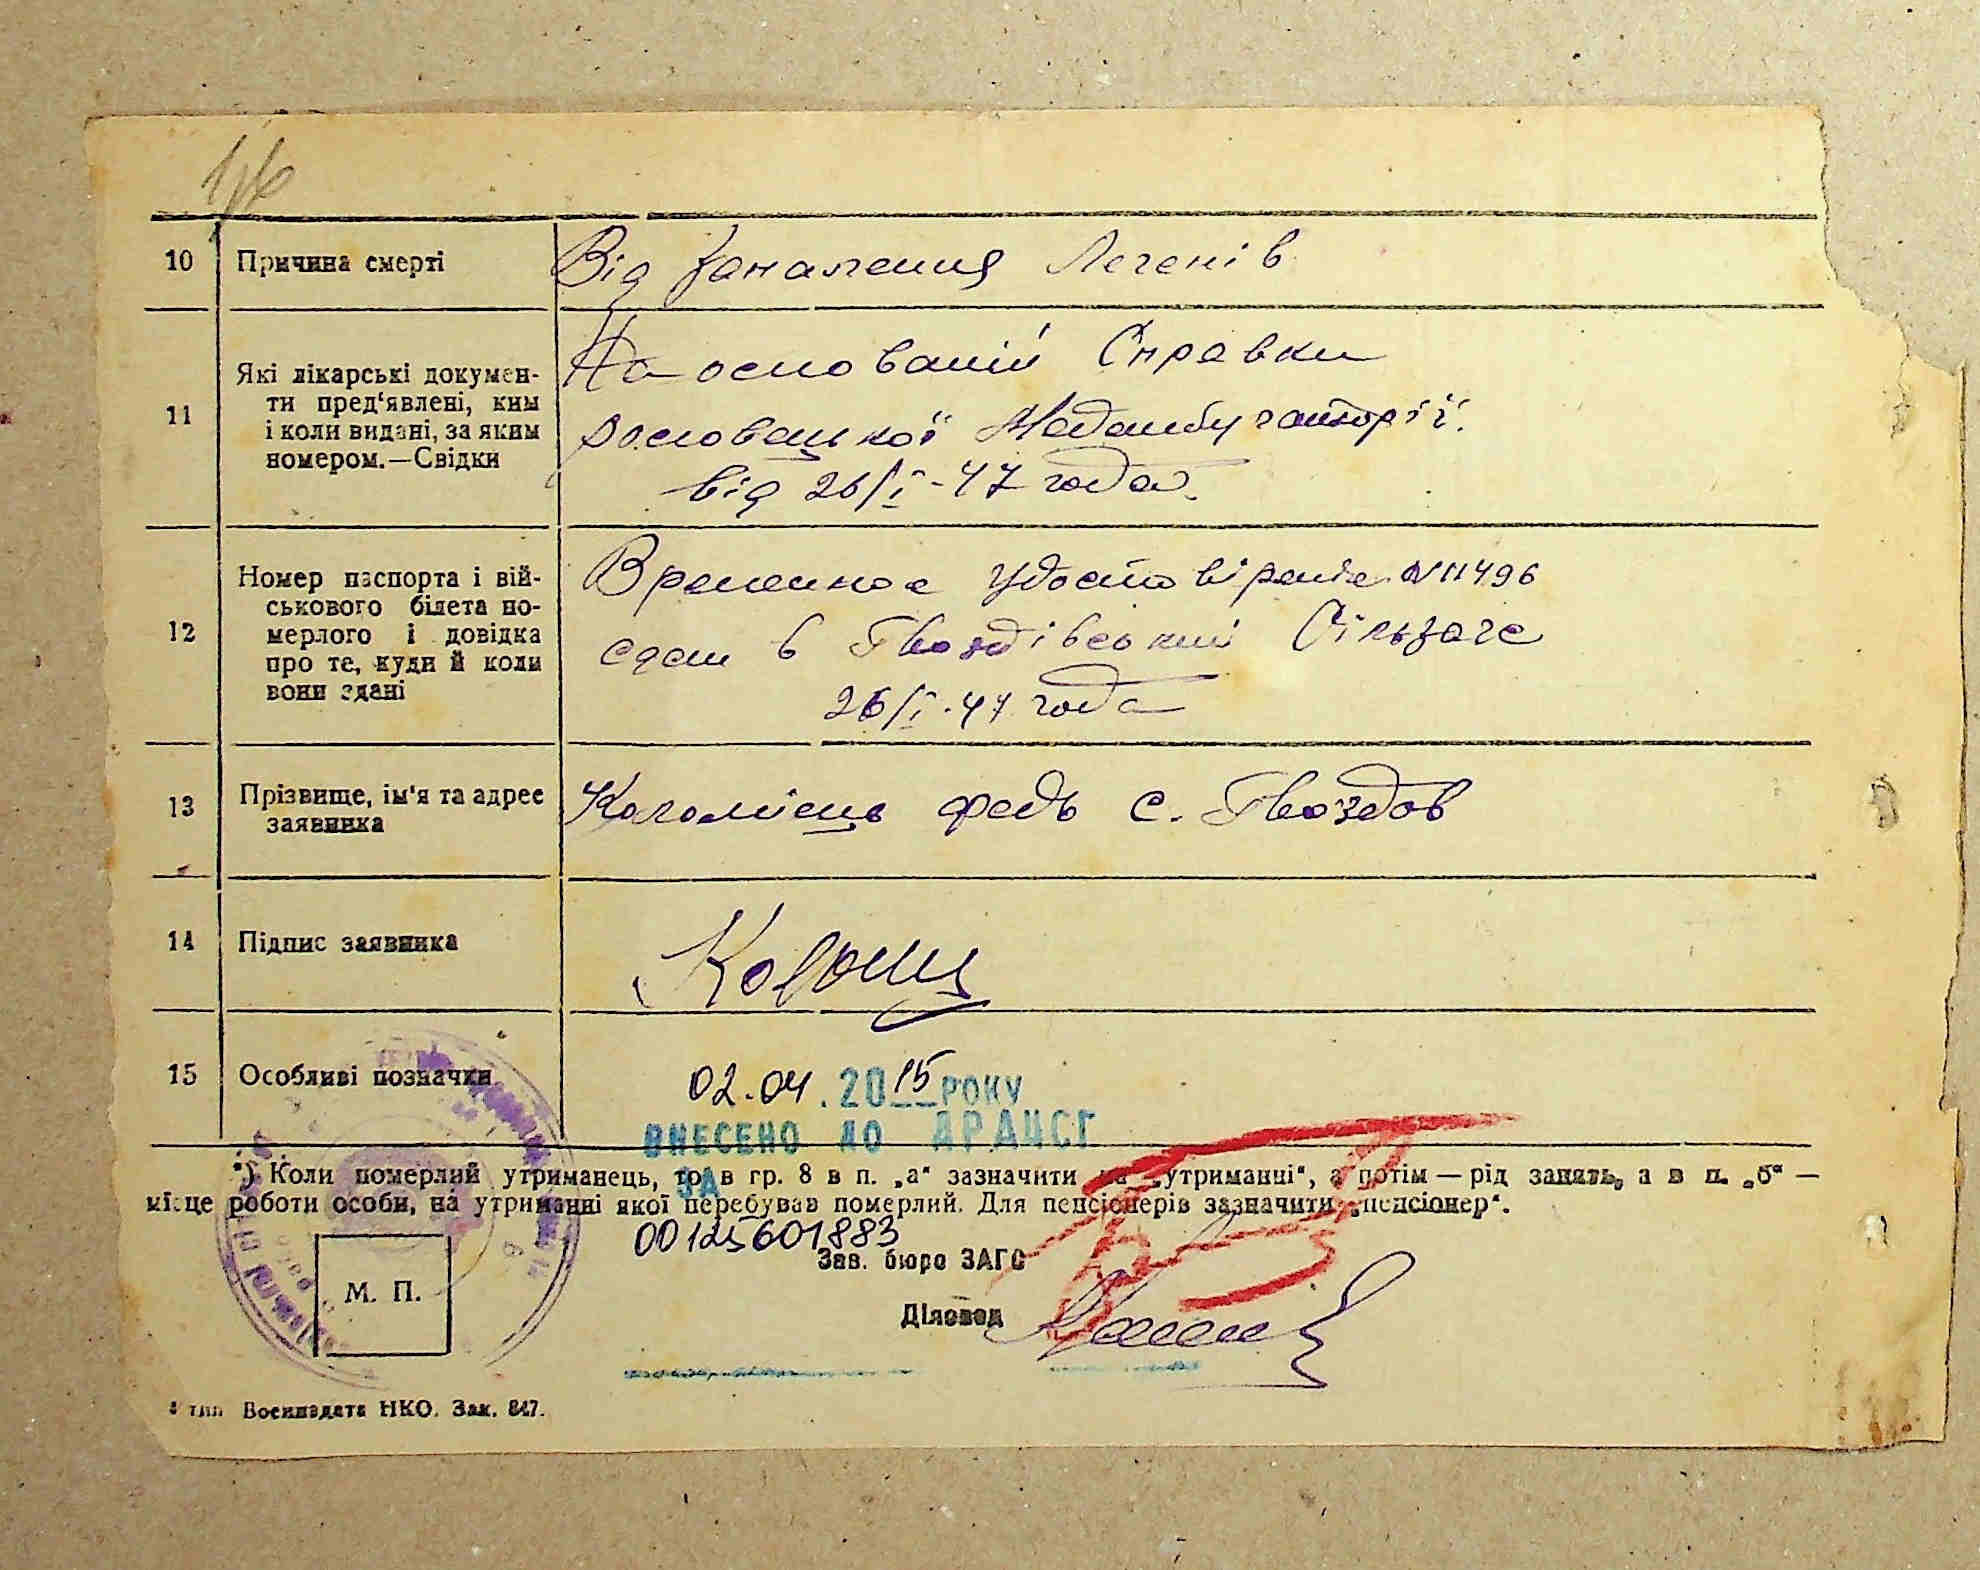 10 Причина смерті Від запалення Легенів
11 Які лікарські докумен-
ти пред'явлені, ким
і коли видані, за яким
номером.—Свідки
На основаній Справки
Рословецької Медамбулаторії.
від 26/I-47 года.
12 Номер паспорта і вій-
ськового білета по-
мерлого і довідка
про те, куди й коли
вони здані
Временное Удостовіреніе №11496
сдан в Гвоздівський
26/I-47 года
13 Прізвище, ім'я та адрес
заявника
Коломієць Федь с. Гвоздов
14 Підпис заявника
15 Особливі позначки
02.04.2015 РОКУ
ВНЕСЕНО ДО ДРАЦСГ
ЗА
*) Коли померлий утриманець, то в гр. 8 в п. „а“ зазначити на „утриманні“, а потім — рід занять, а в п. „б“ —
місце роботи особи, на утриманні якої перебував померлий. Для пенсіонерів зазначити „пенсіонер“.
00125601883
Зав. бюро ЗАГС
М. П.
Діловод
тип Воениздата НКО. Зак. 847.